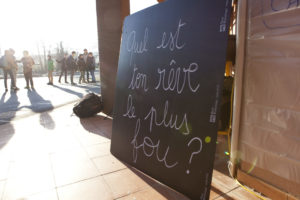 Quel est
ton rêve
le plus
fou ?